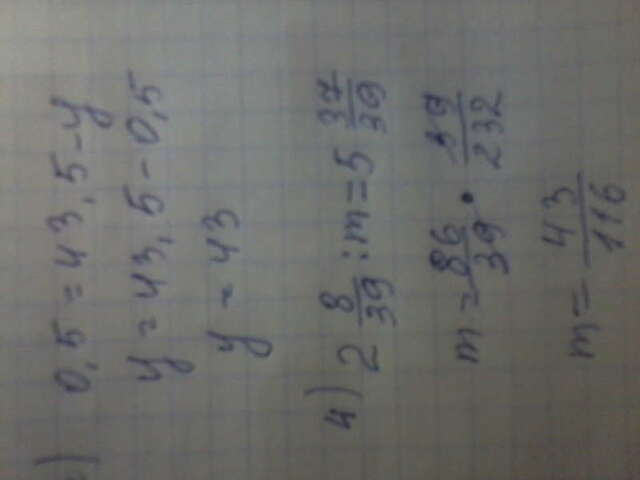 ) 0,5 = 43,5 - y
y = 43,5 - 0,5
y = 43
4) 2 8/39 : m = 5 37/39
m = 86/39 • 39/232
m = 43/116